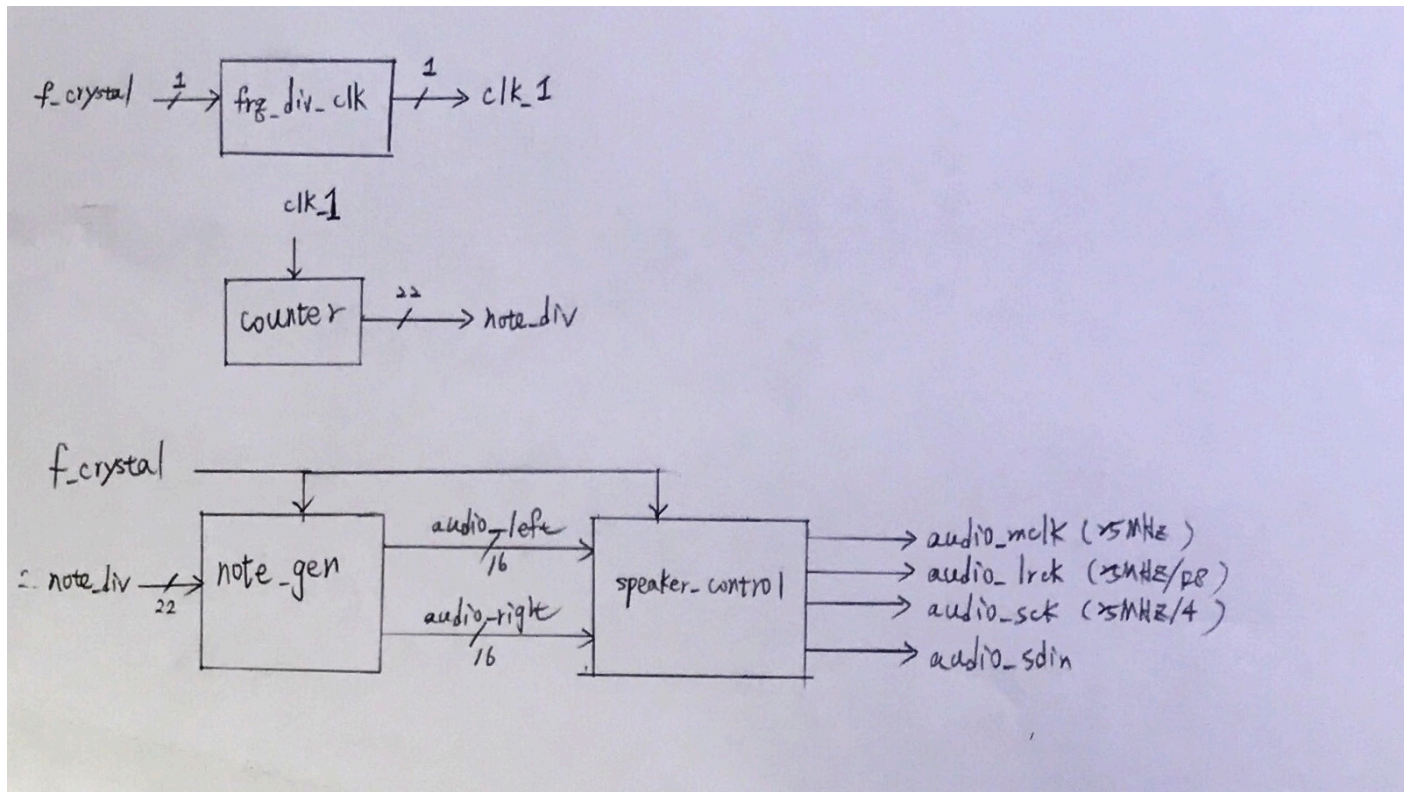 f_crystal 1 frq_div_clk 1 clk_1
clk_1
counter 22 note_div
f_crystal
note_div 22 note_gen
audio_left 16
audio_right 16
speaker_control
audio_mclk (25MHz)
audio_lrck (25MHz/128)
audio_sck (25MHz/4)
audio_sdin